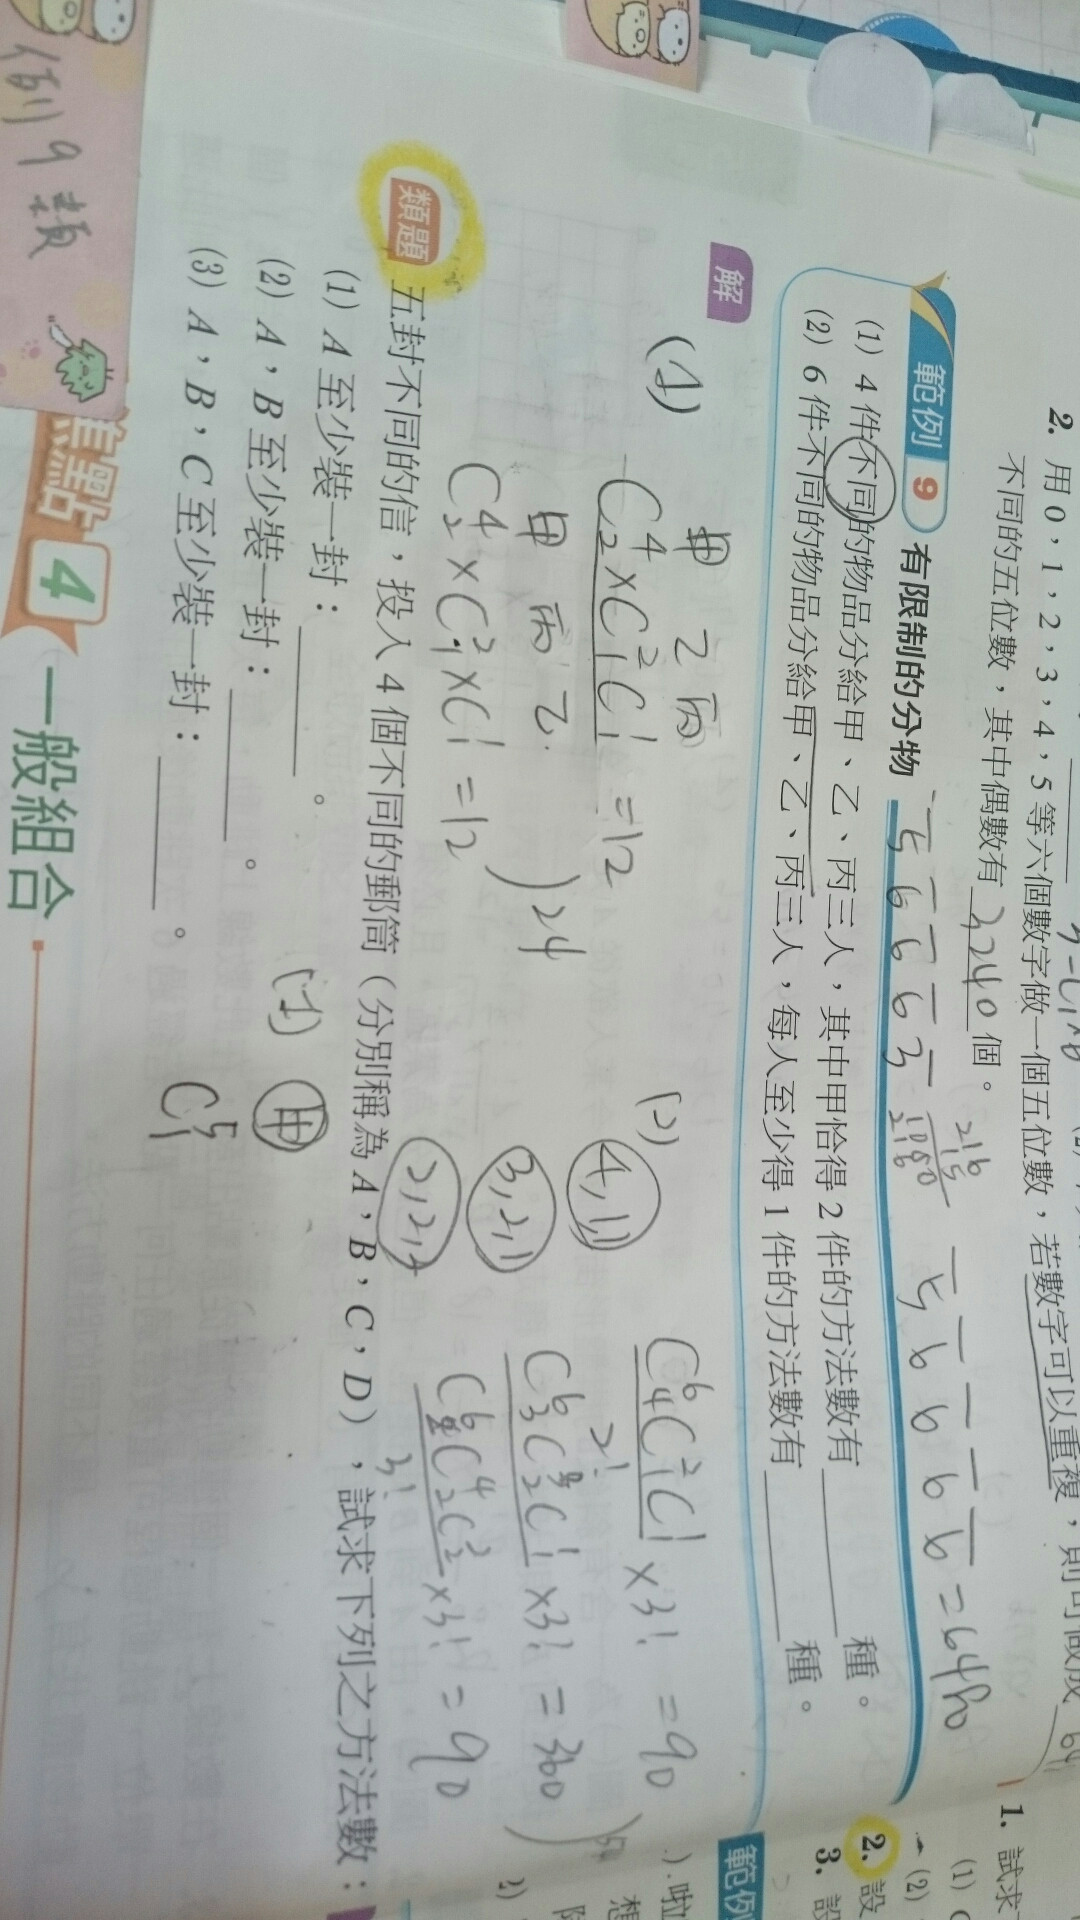 2. 用 0，1，2，3，4，5 等六個數字做一個五位數，若數字可以重複，則可做成
不同的五位數，其中偶數有 3240 個。
5 6 6 6 3
5 6 6 6 6 = 6480
範例 9 有限制的分物
(1) 4 件不同的物品分給甲、乙、丙三人，其中甲恰得 2 件的方法數有 種。
(2) 6 件不同的物品分給甲、乙、丙三人，每人至少得 1 件的方法數有 種。
解
(1) 甲 乙 丙
C⁴₂×C²₁C¹₁ = 12
甲 丙 乙
C⁴₂×C²₁×C¹₁ = 12
24
(2) 4,1,1 C⁶₄C²₁C¹₁/2! ×3! = 90
3,2,1 C⁶₃C³₂C¹₁×3! = 360
2,2,2 C⁶₂C⁴₂C²₂/3! ×3! = 90
類題 五封不同的信，投入 4 個不同的郵筒（分別稱為 A，B，C，D），試求下列之方法數：
(1) A 至少裝一封： 。
(2) A，B 至少裝一封： 。
(3) A，B，C 至少裝一封： 。
(1) 甲
C⁵₁
焦點 4 一般組合
例 9 類
1. 試求
(1)
(2)
2. 設
3. 設
範例